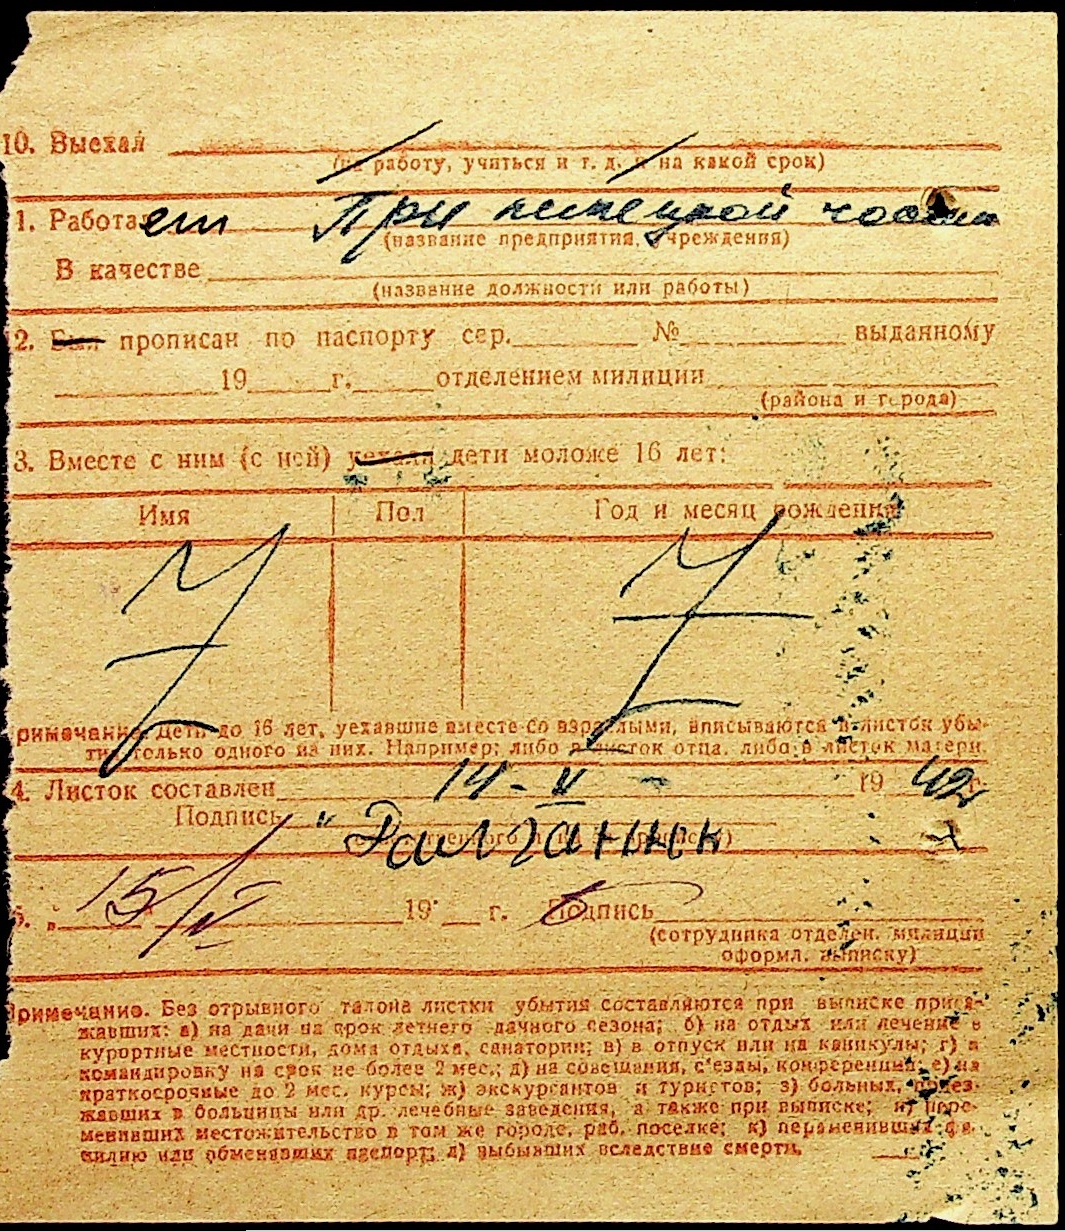 10. Выехал
(на работу, учиться и т. д. и на какой срок)
1. Работает При немецкой части
(название предприятия, учреждения)
В качестве
(название должности или работы)
2. Был прописан по паспорту сер. № выданному
19 г. отделением милиции
(района и города)
3. Вместе с ним (с ней) уехали дети моложе 16 лет:
Имя Пол Год и месяц рождения
римечание. Дети до 16 лет, уехавшие вместе со взрослыми, вписываются в листок убы-
тия только одного из них. Например: либо в листок отца, либо в листок матери.
4. Листок составлен 14-V- 19 42 г.
Подпись "
5. „ 15/V 19 г. Подпись
(сотрудника отделен. милиции
оформл. выписку)
Примечание. Без отрывного талона листки убытия составляются при выписке приез-
жавших: а) на дачи на срок летнего дачного сезона; б) на отдых или лечение в
курортные местности, дома отдыха, санатории; в) в отпуск или на каникулы; г) в
командировку на срок не более 2 мес.; д) на совещания, с'езды, конференции; е) на
краткосрочные до 2 мес. курсы; ж) экскурсантов и туристов; з) больных, приез-
жавших в больницы или др. лечебные заведения, а также при выписке; и) пере-
менивших местожительство в том же городе, раб. поселке; к) переменивших фа-
милию или обменявших паспорт; л) выбывших вследствие смерти.